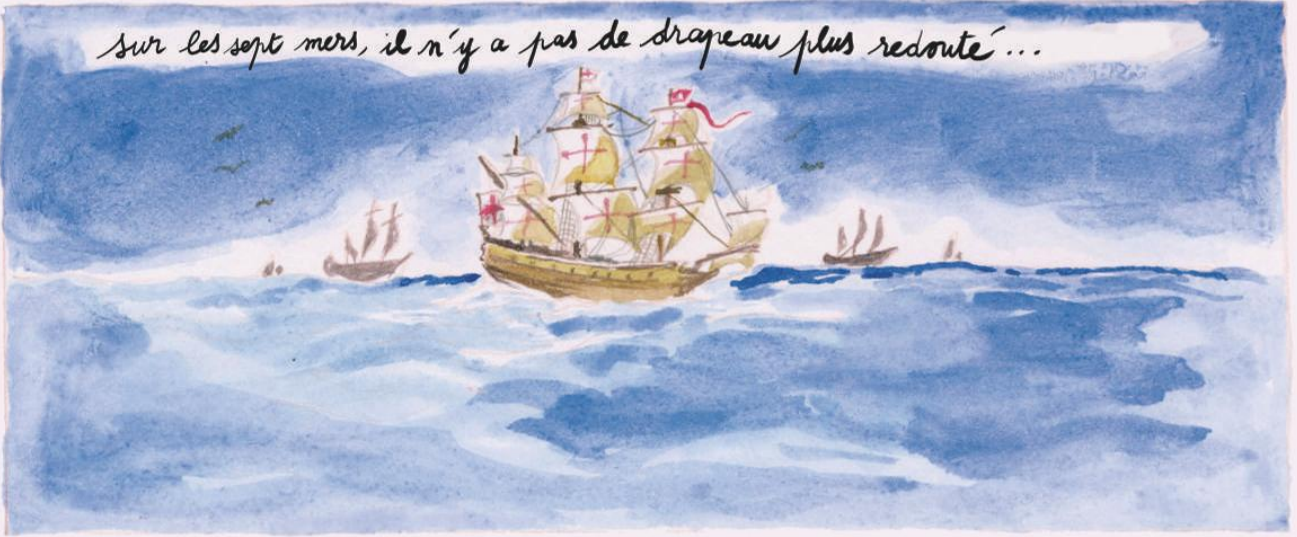 sur les sept mers, il n'y a pas de drapeau plus redouté...